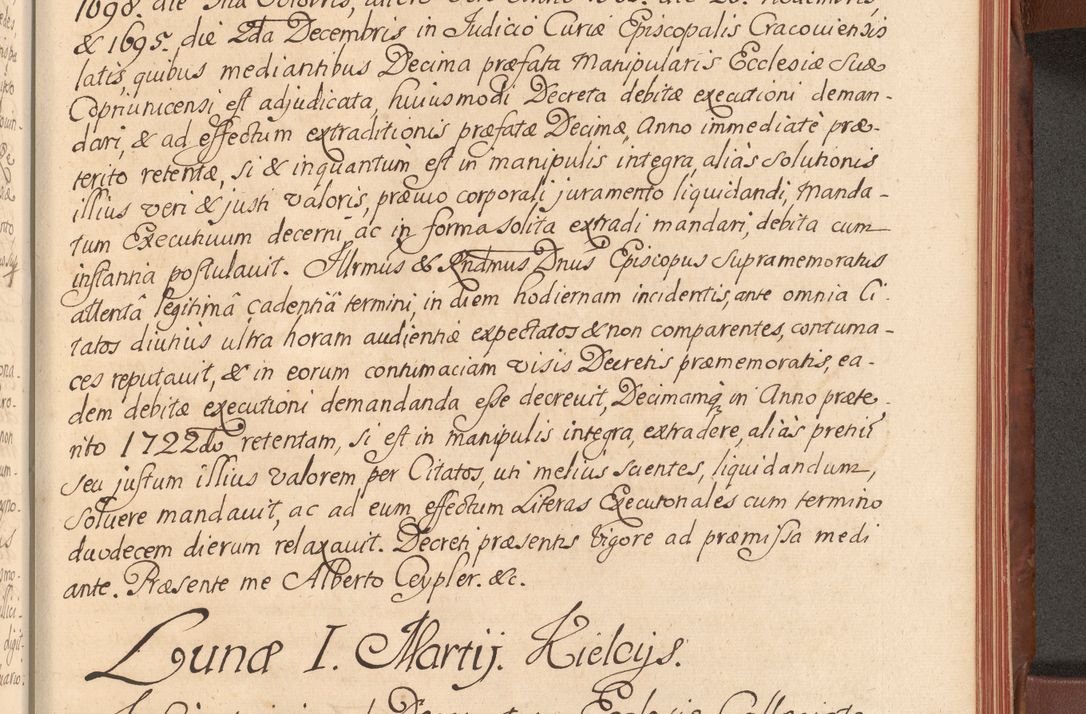 & 1695. die 2da Decembris in Judicio Curiæ Episcopalis Cracoviensis
latis, quibus mediantibus Decima præfata Manipularis Ecclesiæ Suæ
Coprivnicensi est adjudicata, huiusmodi Decreta debitæ executioni deman-
dari, & ad effectum extraditionis præfatæ Decimæ, Anno immediatè præ-
terito retentæ, si & inquantùm est in manipulis integra, aliàs solutionis
illius veri & justi valoris, prævio corporali juramento liquidandi, Manda-
tum Executivum decerni, ac in forma solita extradi mandari, debita cum
instantia postulavit. Illrmus & Rndmus Dnus Episcopus supramemoratus
attentâ legitimâ cadentiâ termini, in diem hodiernam incidentis, ante omnia Ci-
tatos diutiùs ultra horam audientiæ expectatos & non comparentes, contuma-
ces reputavit, & in eorum contumaciam visis Decretis præmemoratis, ea-
dem debitæ executioni demandanda esse decrevit, Decimamq in Anno præte-
rito 1722do retentam, si est in manipulis integra, extradere, aliàs pretiū
seu justum illius valorem per Citatos, uti melius scientes, liquidandum,
solvere mandavit, ac ad eum effectum Literas Executoriales cum termino
duodecem dierum relaxavit. Decreti præsentis vigore ad præmissa medi
ante. Præsente me Alberto Ceypler. &c.
Lunæ I. Martij. Kielcijs.